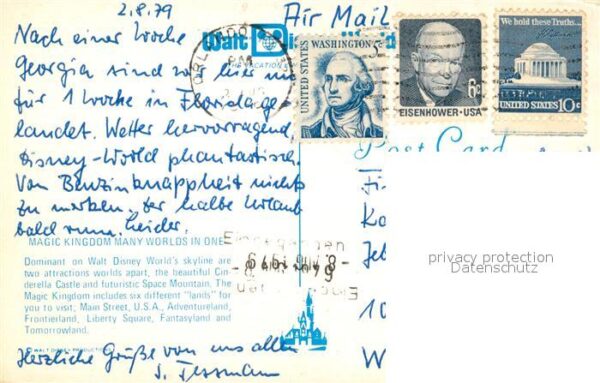 2.8.79
Air Mail
Nach einer Woche
Georgia sind wir hier nun
für 1 Woche in Florida ge-
landet. Wetter hervorragend,
Disney-World phantastisch.
Von Benzinknappheit nichts
zu merken. Der halbe Urlaub
bald rum. Leider.
Walt Disney World
THE VACATION
ORLANDO
PM
UNITED STATES
WASHINGTON 5c
6c
EISENHOWER·USA
We hold these Truths...
UNITED STATES 10c
Post Card
MAGIC KINGDOM MANY WORLDS IN ONE
Dominant on Walt Disney World's skyline are
two attractions worlds apart, the beautiful Cin-
derella Castle and futuristic Space Mountain. The
Magic Kingdom includes six different "lands" for
you to visit; Main Street, U.S.A., Adventureland,
Frontierland, Liberty Square, Fantasyland and
Tomorrowland.
© WALT DISNEY PRODUCTIONS
Herzliche Grüße von uns allen
J. Tessmann
Eingegangen
-8. AUG. 1979
Eingegangen
Fi
Ko
Jel
10
W
privacy protection
Datenschutz